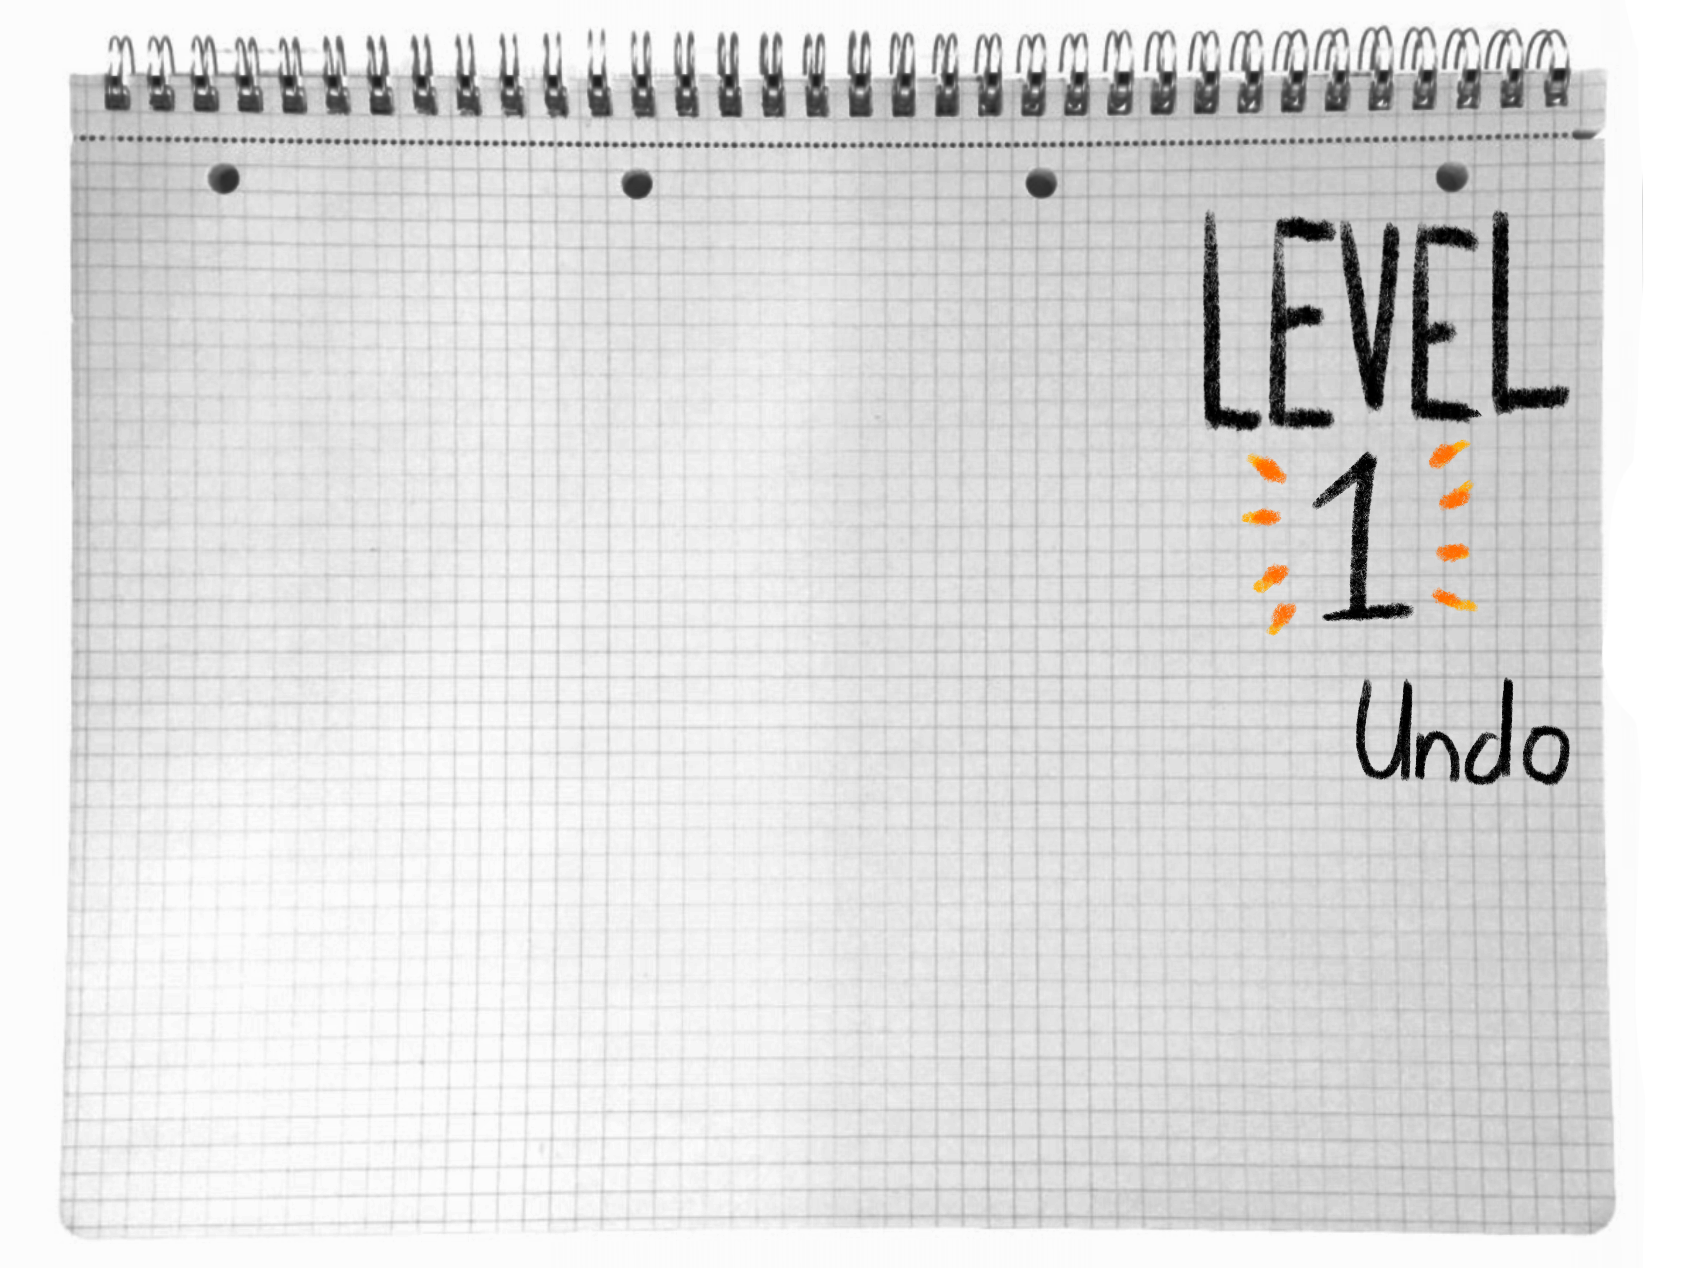 LEVEL
1
Undo